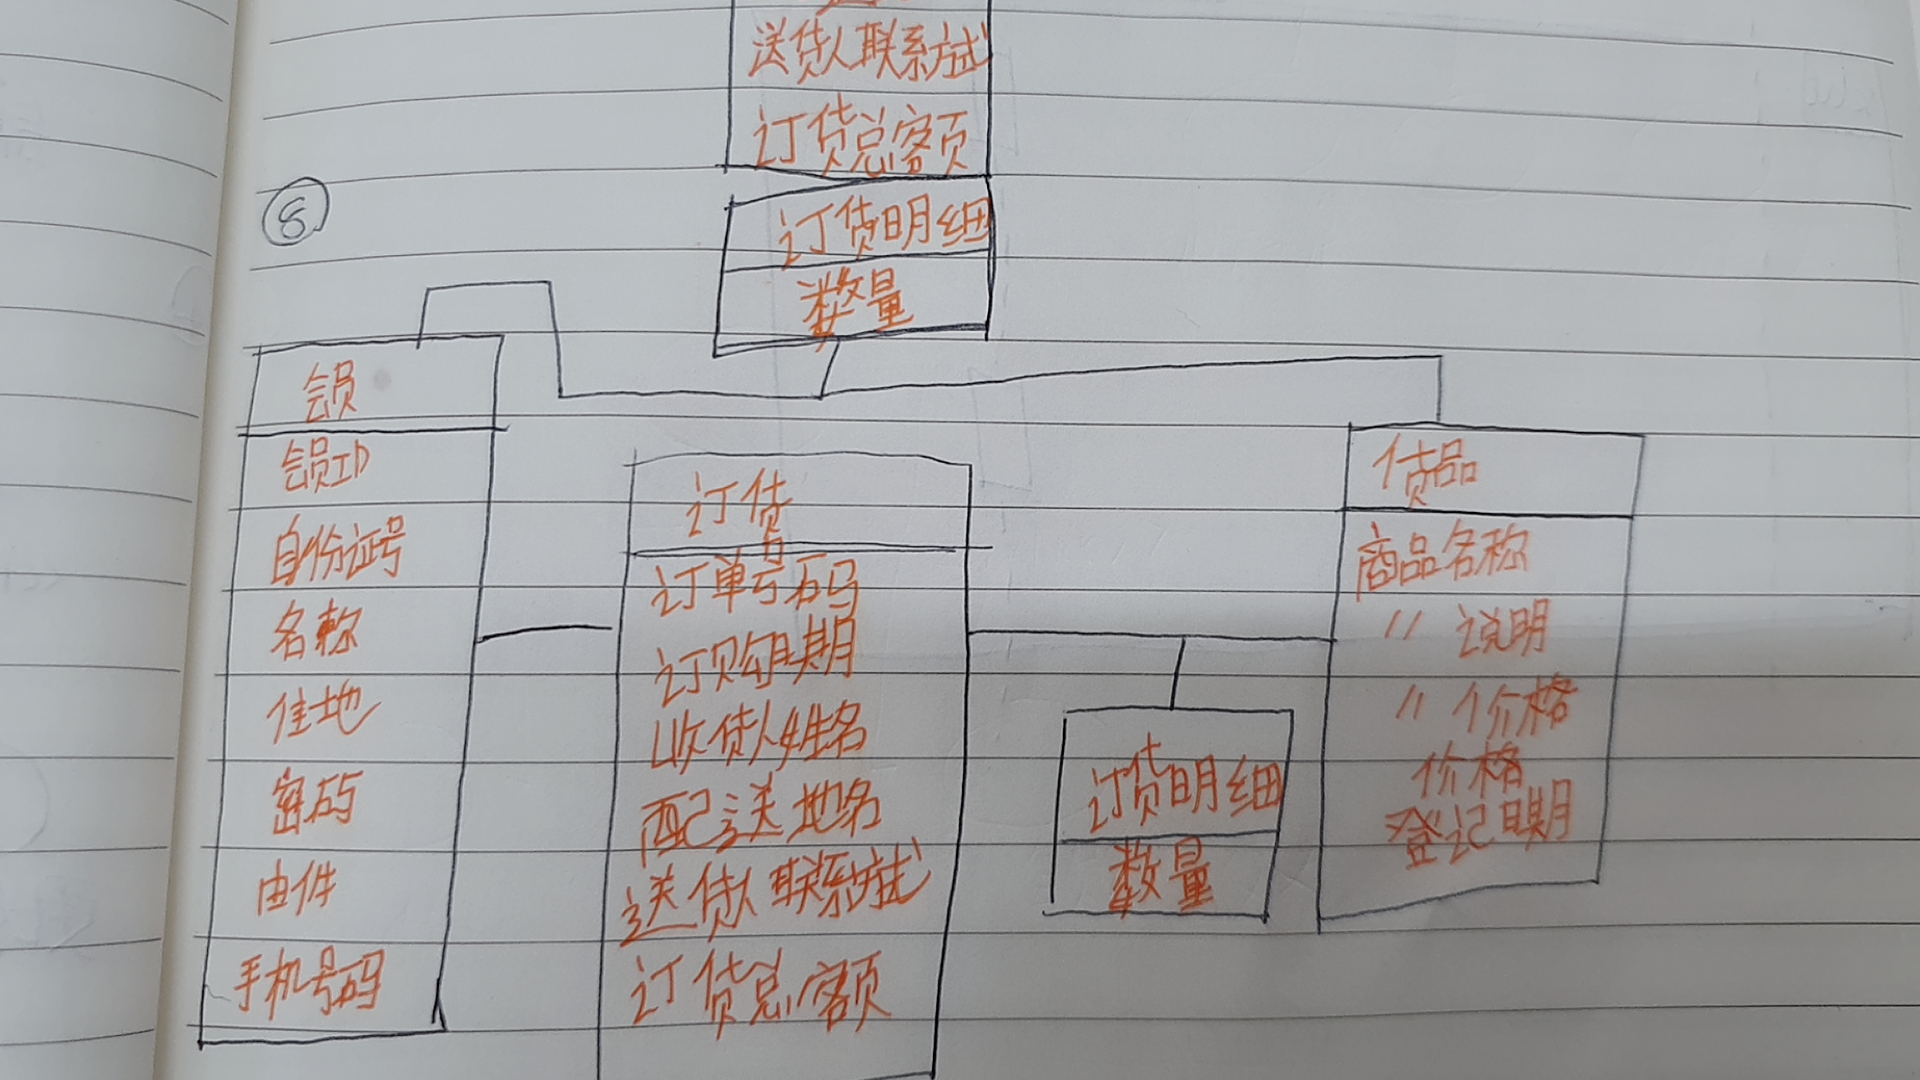 送货人联系方式
订货总额
⑧
订货明细
数量
会员
会员ID
身份证号
名称
住地
密码
由件
手机号码
订货
订单号码
订购日期
收货人姓名
配送地名
送货人联系方式
订货总额
订货明细
数量
货品
商品名称
〃 说明
〃 价格
价格
登记日期